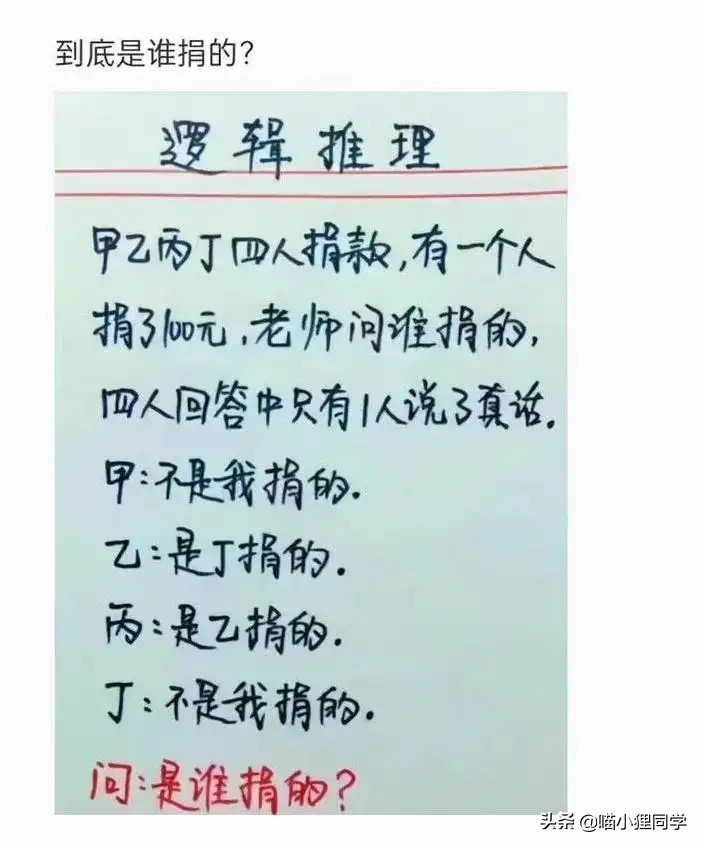 到底是谁捐的?
逻辑推理
甲乙丙丁四人捐款,有一个人
捐了100元,老师问谁捐的,
四人回答中只有1人说了真话.
甲:不是我捐的.
乙:是丁捐的.
丙:是乙捐的.
丁:不是我捐的.
问:是谁捐的?
头条 @喵小狸同学